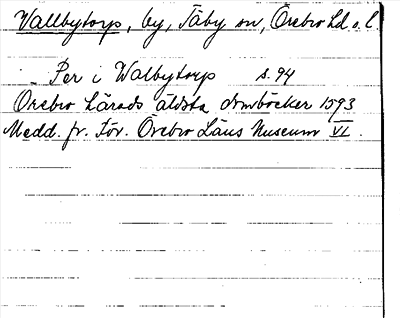 Wallbytorp, by, Täby sn, Örebro hd o. l.
Per i Walbytorp s. 94
Örebro härads äldsta domböcker 1593
Medd. fr. För. Örebro Läns Museum VI.